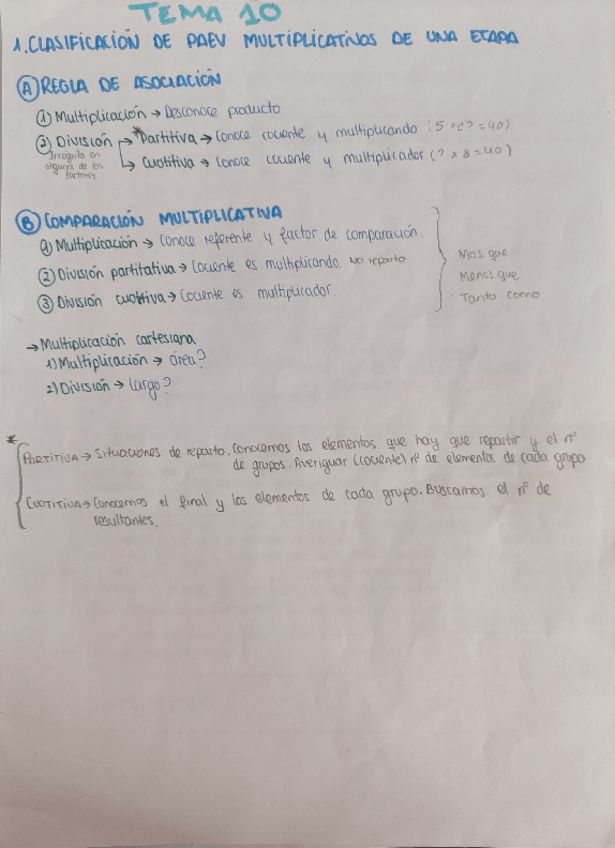 TEMA 10
1. CLASIFICACIÓN DE PAEV MULTIPLICATIVOS DE UNA ETAPA
A REGLA DE ASOCIACIÓN
1 Multiplicación → Desconoce producto
2 División → *Partitiva → Conoce cociente y multiplicando (5 × ¿? = 40)
Incógnita en alguno de los factores
↳ Cuotitiva → Conoce cociente y multiplicador (? × 8 = 40)
B COMPARACIÓN MULTIPLICATIVA
1 Multiplicación → Conoce referente y factor de comparación.
2 División partitativa → Cociente es multiplicando. No reparto
3 División cuotitiva → Cociente es multiplicador.
Mas que
Menos que
Tanto como
→ Multiplicación cartesiana
1) Multiplicación → área?
2) División → Largo?
*
PARTITIVA → Situaciones de reparto. Conocemos los elementos que hay que repartir y el nº
de grupos. Averiguar (cociente) nº de elementos de cada grupo
CUOTITIVA → Conocemos el final y los elementos de cada grupo. Buscamos el nº de
resultantes.